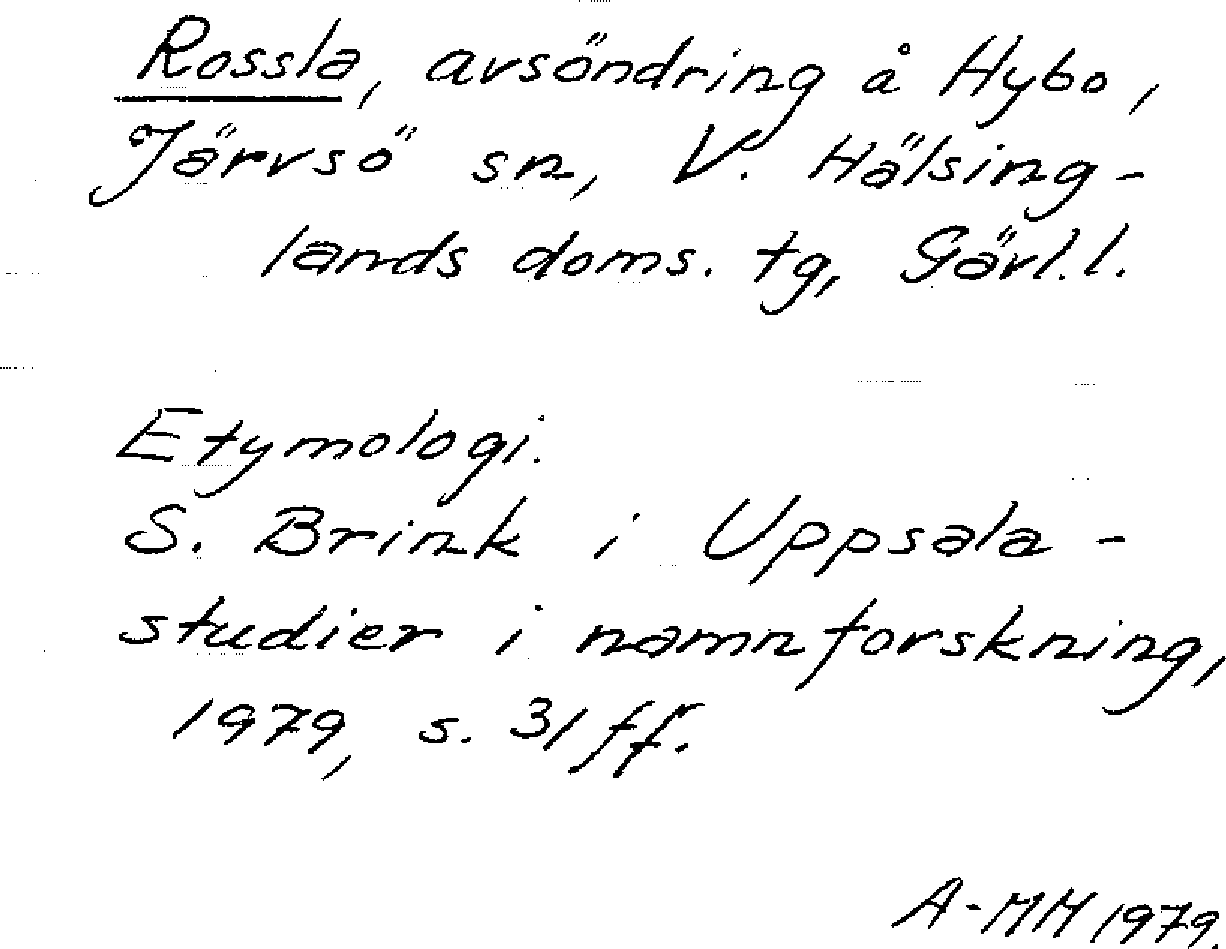 Rossla, avsöndring å Hybo,
Järvsö sn, V. Hälsing-
lands doms. tg, Gävl.l.
Etymologi.
S. Brink i Uppsala-
studier i namnforskning,
1979, s. 31 ff.
A-MH 1979.